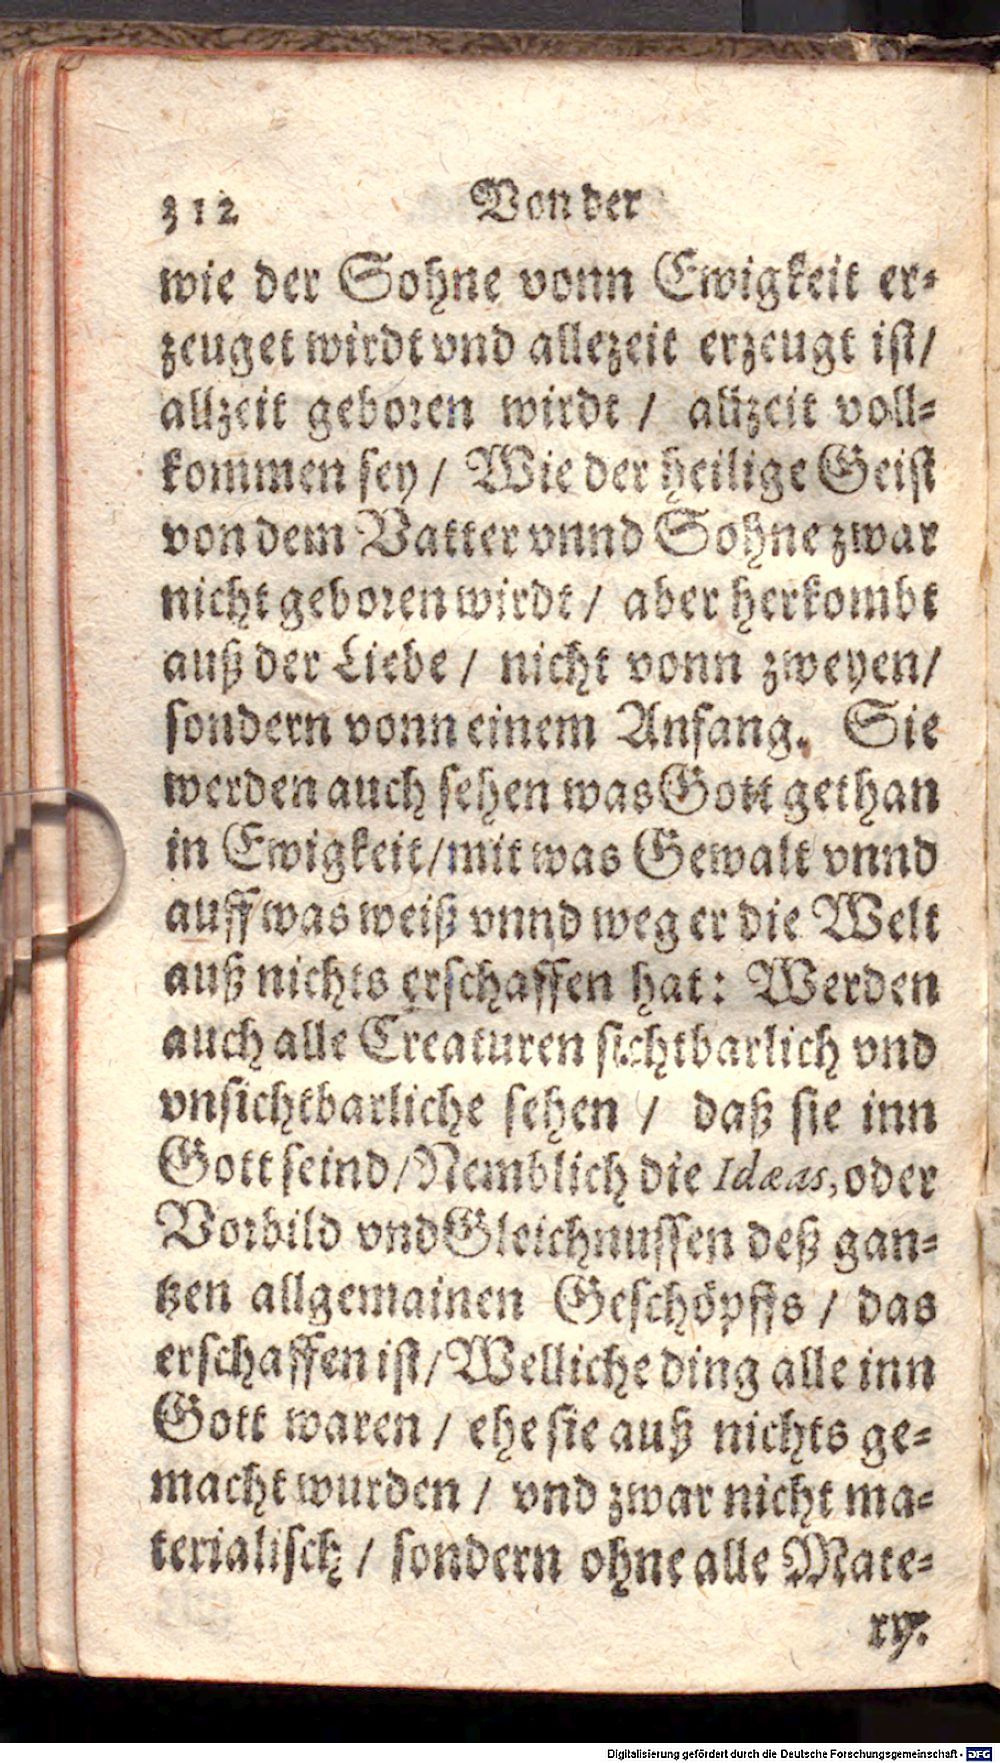 312 Von der
wie der Sohne vonn Ewigkeit er-
zeuget wirdt vnd allezeit erzeugt ist/
allzeit geboren wirdt / allzeit voll-
kommen sey / Wie der heilige Geist
von dem Vatter vnnd Sohne zwar
nicht geboren wirdt / aber herkombt
auß der Liebe / nicht vonn zweyen/
sondern vonn einem Anfang. Sie
werden auch sehen was Gott gethan
in Ewigkeit/mit was Gewalt vnnd
auff was weiß vnnd weg er die Welt
auß nichts erschaffen hat: Werden
auch alle Creaturen sichtbarlich vnd
vnsichtbarliche sehen / daß sie inn
Gott seind/Nemblich die Idæas, oder
Vorbild vnd Gleichnussen deß gan-
tzen allgemainen Geschöpffs / das
erschaffen ist/Welliche ding alle inn
Gott waren / ehe sie auß nichts ge-
macht wurden / vnd zwar nicht ma-
terialisch / sondern ohne alle Mate-
ry.
Digitalisierung gefördert durch die Deutsche Forschungsgemeinschaft - DFG